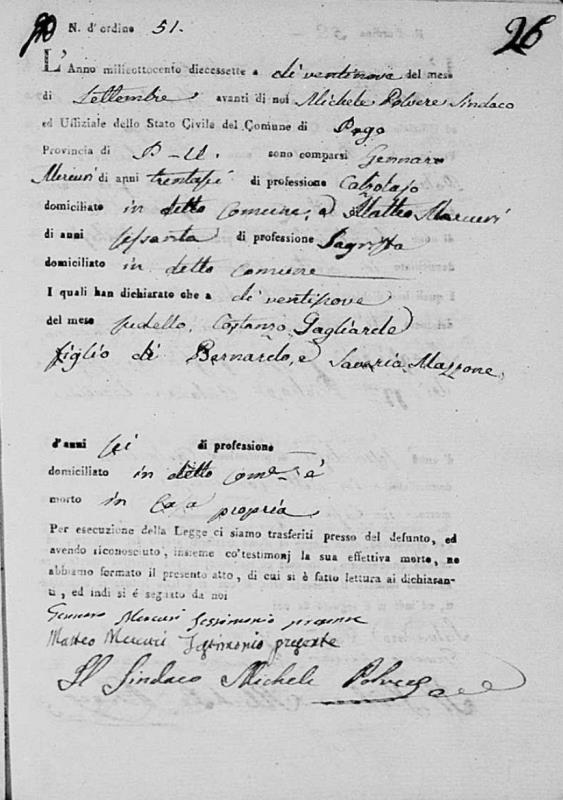 N. d'ordine 51. 26
L'Anno milleottocento diecessette a dì ventinove del mese
di Settembre, avanti di noi Michele Polvere Sindaco
ed Uffiziale dello Stato Civile del Comune di Pago
Provincia di P-U. sono comparsi Gennaro
Mercuri di anni trentasei di professione Calzolajo
domiciliato in detto Comune, e Matteo Mercuri
di anni sessanta di professione Sagrista
domiciliato in detto Comune
I quali han dichiarato che a dì ventinove
del mese sudetto, Costanzo Gagliarde
figlio di Bernardo, e Saveria Mazzone,
d'anni sei di professione
domiciliato in detto Com.e è
morto in casa propria
Per esecuzione della Legge ci siamo trasferiti presso del defunto, ed
avendo riconosciuto, insieme co'testimonj la sua effettiva morte, ne
abbiamo formato il presente atto, di cui si è fatto lettura ai dichiaran-
ti, ed indi si é segnato da noi
Gennaro Mercuri Testimonio presente
Matteo Mercuri Testimonio presente
Il Sindaco Michele Polvere